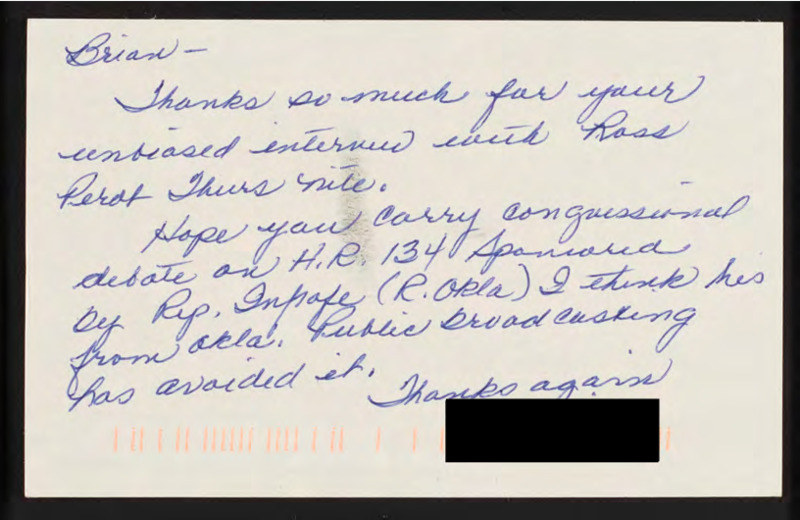 Brian -
Thanks so much for your
unbiased interview with Ross
Perot Thurs nite.
Hope you carry congressional
debate on H.R. 134 Sponsored
by Rep. Inhofe (R. Okla) I think he's
from Okla. Public broadcasting
has avoided it.
Thanks again